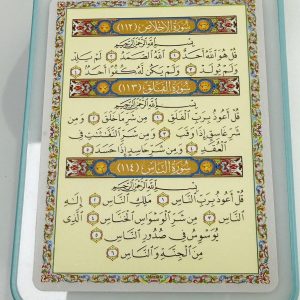 سُورَةُ الإِخْلَاصِ (١١٢)
بِسْمِ اللَّهِ الرَّحْمَٰنِ الرَّحِيمِ
قُلْ هُوَ اللَّهُ أَحَدٌ ١ اللَّهُ الصَّمَدُ ٢ لَمْ يَلِدْ
وَلَمْ يُولَدْ ٣ وَلَمْ يَكُن لَّهُ كُفُوًا أَحَدٌ ٤
سُورَةُ الْفَلَقِ (١١٣)
بِسْمِ اللَّهِ الرَّحْمَٰنِ الرَّحِيمِ
قُلْ أَعُوذُ بِرَبِّ الْفَلَقِ ١ مِن شَرِّ مَا خَلَقَ ٢ وَمِن
شَرِّ غَاسِقٍ إِذَا وَقَبَ ٣ وَمِن شَرِّ النَّفَّاثَاتِ فِي
الْعُقَدِ ٤ وَمِن شَرِّ حَاسِدٍ إِذَا حَسَدَ ٥
سُورَةُ النَّاسِ (١١٤)
بِسْمِ اللَّهِ الرَّحْمَٰنِ الرَّحِيمِ
قُلْ أَعُوذُ بِرَبِّ النَّاسِ ١ مَلِكِ النَّاسِ ٢ إِلَٰهِ
النَّاسِ ٣ مِن شَرِّ الْوَسْوَاسِ الْخَنَّاسِ ٤ الَّذِي
يُوَسْوِسُ فِي صُدُورِ النَّاسِ ٥
مِنَ الْجِنَّةِ وَالنَّاسِ ٦